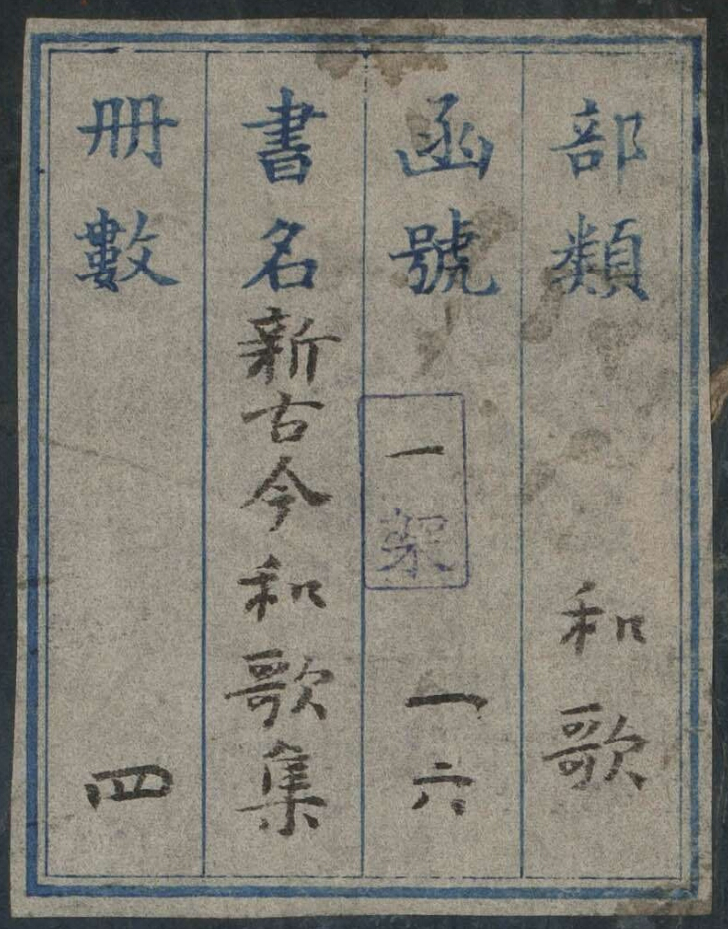 部類 和歌
函號 一架 一六
書名 新古今和歌集
册數 四